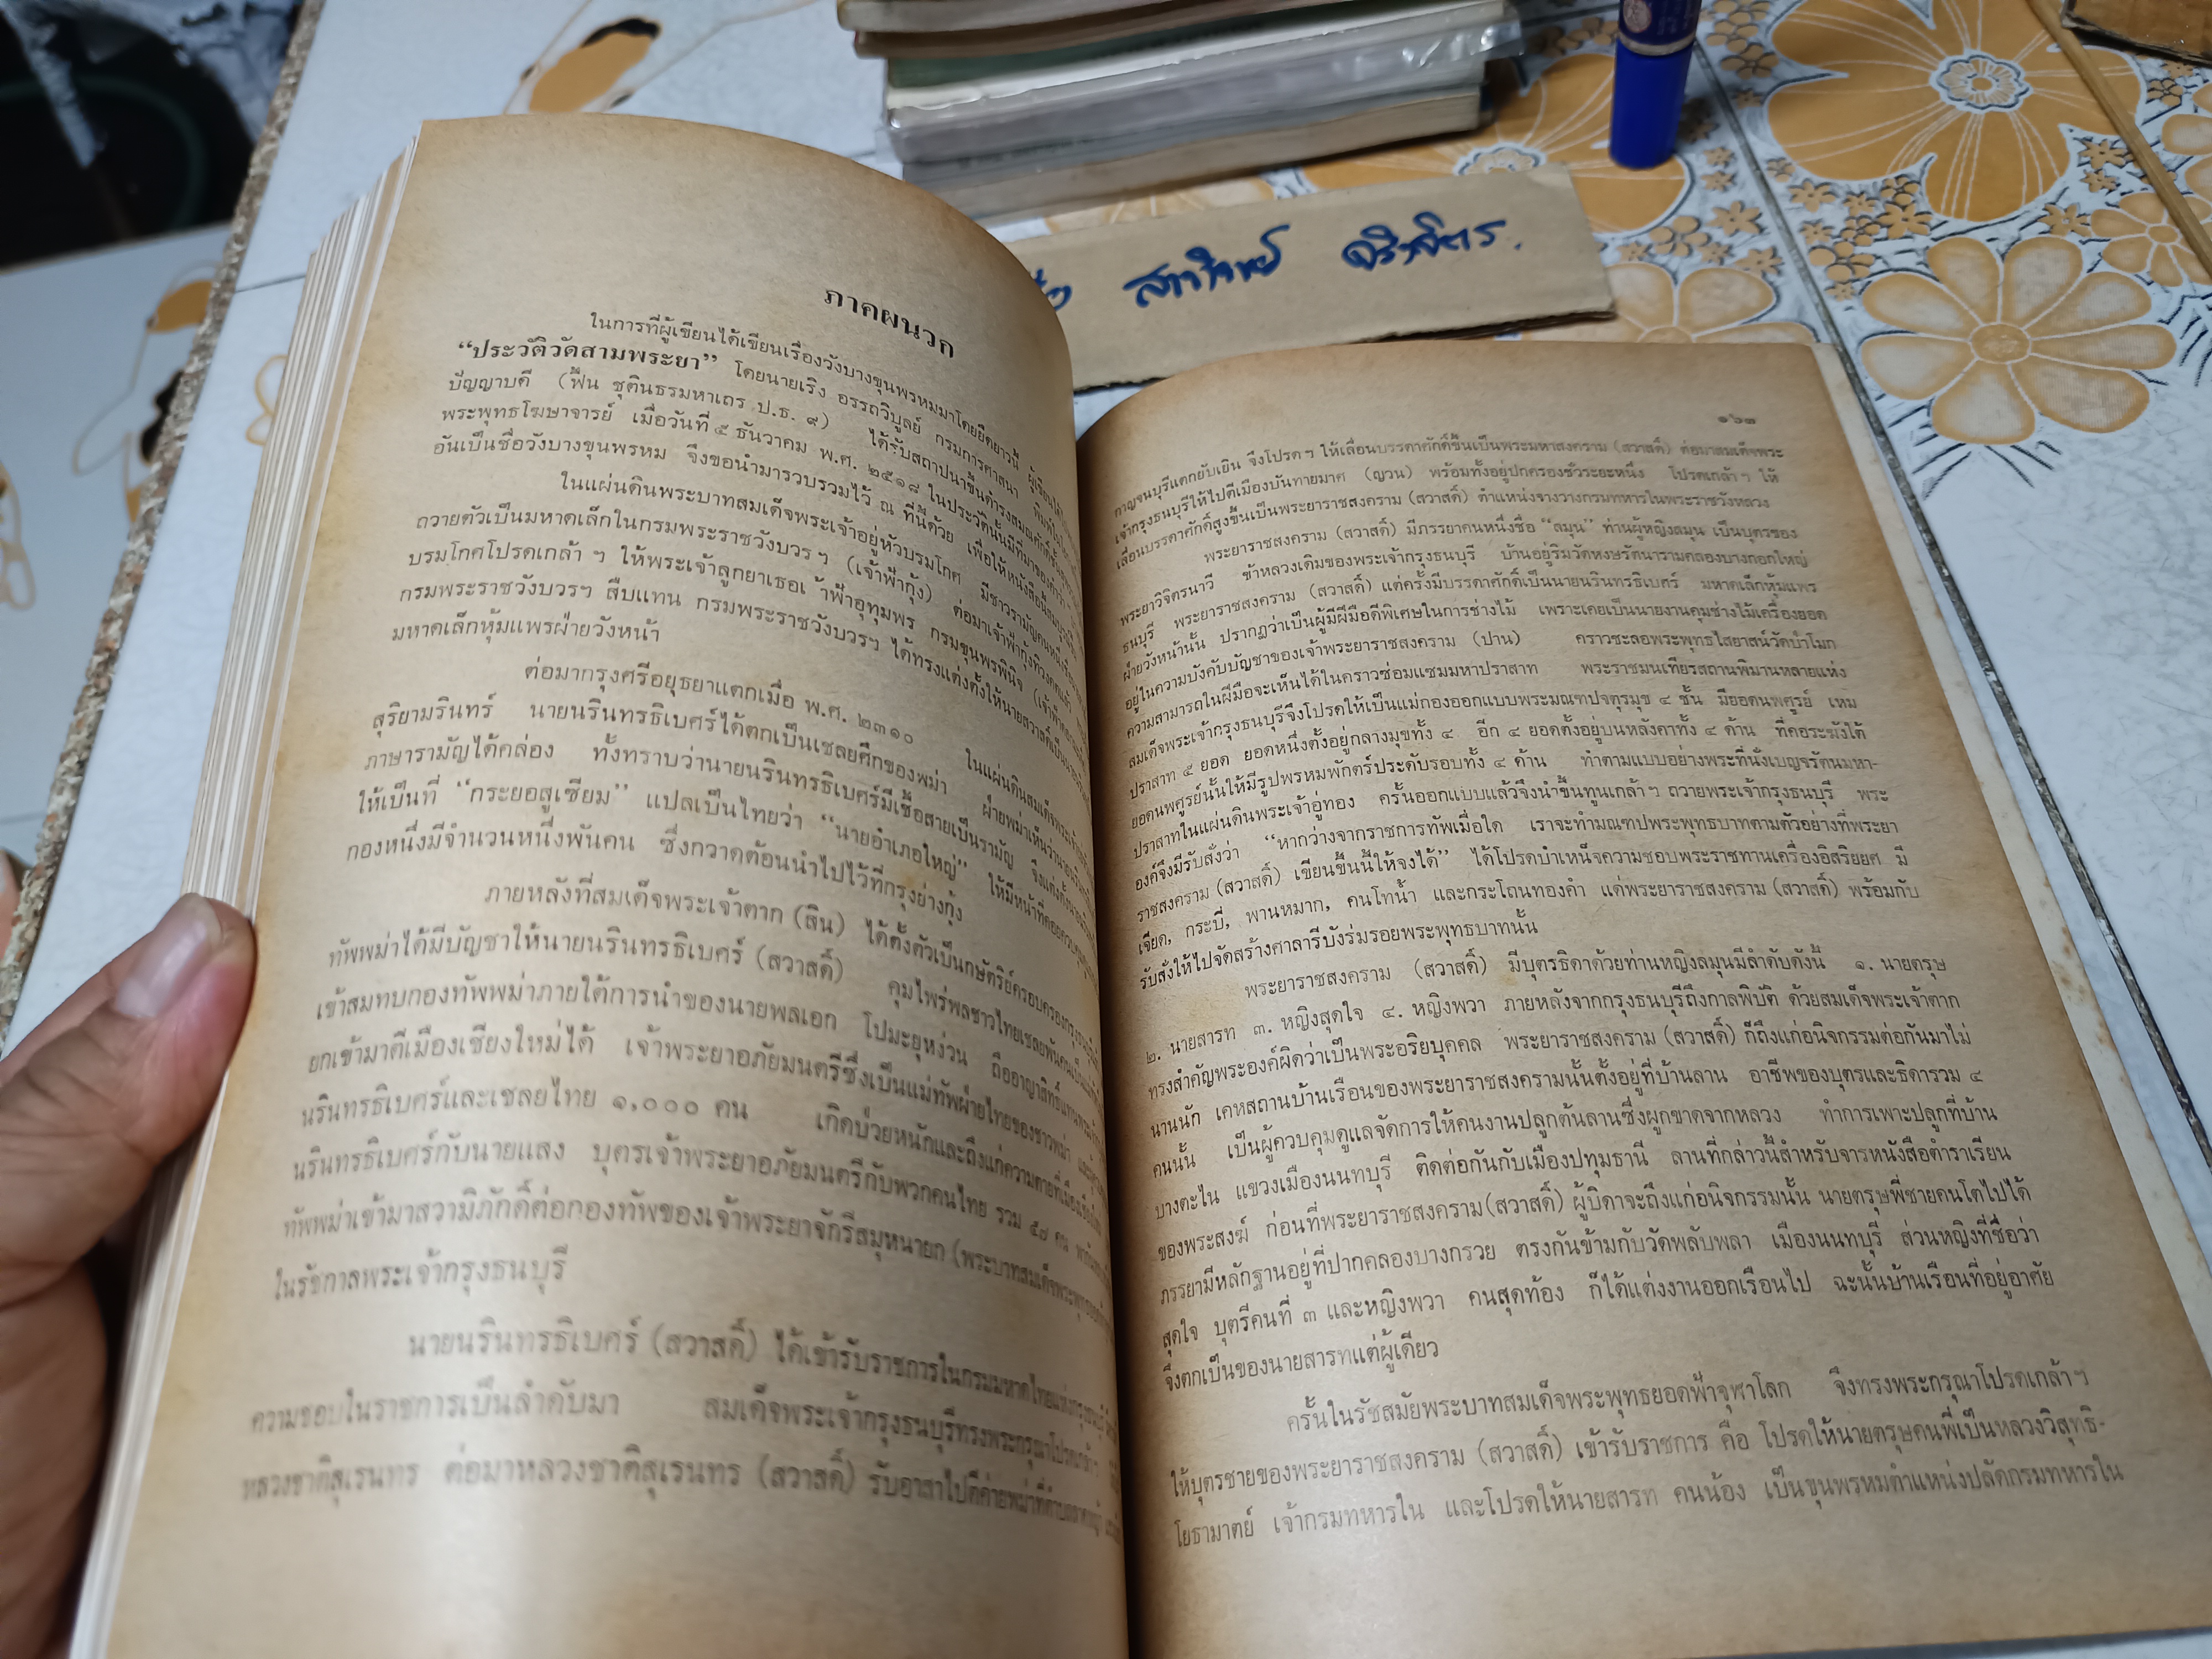 สาวิตรี
ภาคผนวก
ในการที่ผู้เขียนได้เขียนเรื่องวังบางขุนพรหมมาโดยยืดยาวนี้ ผู้เขียนได้
“ประวัติวัดสามพระยา” โดยนายเริง อรรถวิบูลย์ กรมการศาสนา พิมพ์
ปัญญาบดี (ฟื้น ชุตินธรมหาเถร ป.ธ. ๙) ได้รับสถาปนาขึ้นดำรงสมณศักดิ์
พระพุทธโฆษาจารย์ เมื่อวันที่ ๕ ธันวาคม พ.ศ. ๒๕๑๘ ในประวัตินั้นมีที่มาของคำว่า
อันเป็นชื่อวังบางขุนพรหม จึงขอนำมารวบรวมไว้ ณ ที่นี้ด้วย เพื่อให้หนังสือนี้สมบูรณ์
ในแผ่นดินพระบาทสมเด็จพระเจ้าอยู่หัวบรมโกศ มีชาวรามัญคนหนึ่งชื่อ
ถวายตัวเป็นมหาดเล็กในกรมพระราชวังบวร ฯ (เจ้าฟ้ากุ้ง) ต่อมาเจ้าฟ้ากุ้งทิวงคตแล้ว
บรมโกศโปรดเกล้า ฯ ให้พระเจ้าลูกยาเธอ เจ้าฟ้าอุทุมพร กรมขุนพรพินิจ
กรมพระราชวังบวรฯ สืบแทน กรมพระราชวังบวรฯ ได้ทรงแต่งตั้งให้นายสวาสดิ์เป็น
มหาดเล็กหุ้มแพรฝ่ายวังหน้า
ต่อมากรุงศรีอยุธยาแตกเมื่อ พ.ศ. ๒๓๑๐ ในแผ่นดินสมเด็จพระเจ้า
สุริยามรินทร์ นายนรินทรธิเบศร์ได้ตกเป็นเชลยศึกของพม่า ฝ่ายพม่าเห็นว่า
ภาษารามัญได้คล่อง ทั้งทราบว่านายนรินทรธิเบศร์มีเชื้อสายเป็นรามัญ จึงแต่งตั้ง
ให้เป็นที่ “กระยอสูเซียม” แปลเป็นไทยว่า “นายอำเภอใหญ่” ให้มีหน้าที่คอยควบคุม
กองหนึ่งมีจำนวนหนึ่งพันคน ซึ่งกวาดต้อนนำไปไว้ที่กรุงย่างกุ้ง
ภายหลังที่สมเด็จพระเจ้าตาก (สิน) ได้ตั้งตัวเป็นกษัตริย์ครอบครองกรุงธนบุรี
ทัพพม่าได้มีบัญชาให้นายนรินทรธิเบศร์ (สวาสดิ์) คุมไพร่พลชาวไทยเชลยพันคน
เข้าสมทบกองทัพพม่าภายใต้การนำของนายพลเอก โปมะยุหง่วน ถืออาญาสิทธิ์
ยกเข้ามาตีเมืองเชียงใหม่ได้ เจ้าพระยาอภัยมนตรีซึ่งเป็นแม่ทัพฝ่ายไทยของชาวพม่า
นรินทรธิเบศร์และเชลยไทย ๑,๐๐๐ คน เกิดป่วยหนักและถึงแก่ความตายที่เมืองเชียงใหม่
นรินทรธิเบศร์กับนายแสง บุตรเจ้าพระยาอภัยมนตรีกับพวกคนไทย รวม ๕๗ คน
ทัพพม่าเข้ามาสวามิภักดิ์ต่อกองทัพของเจ้าพระยาจักรีสมุหนายก (พระบาทสมเด็จพระพุทธยอดฟ้า
ในรัชกาลพระเจ้ากรุงธนบุรี
นายนรินทรธิเบศร์ (สวาสดิ์) ได้เข้ารับราชการในกรมมหาดไทยแห่งกรุงธนบุรี
ความชอบในราชการเป็นลำดับมา สมเด็จพระเจ้ากรุงธนบุรีทรงพระกรุณาโปรดเกล้าฯ
หลวงชาติสุเรนทร ต่อมาหลวงชาติสุเรนทร (สวาสดิ์) รับอาสาไปตีค่ายพม่าที่ตำบล
๑๖๓
กาญจนบุรีแตกยับเยิน จึงโปรดฯ ให้เลื่อนบรรดาศักดิ์ขึ้นเป็นพระมหาสงคราม (สวาสดิ์) ต่อมาสมเด็จพระ
เจ้ากรุงธนบุรีให้ไปตีเมืองบันทายมาศ (ญวน) พร้อมทั้งอยู่ปกครองชั่วระยะหนึ่ง โปรดเกล้าฯ ให้
เลื่อนบรรดาศักดิ์สูงขึ้นเป็นพระยาราชสงคราม (สวาสดิ์) ตำแหน่งจางวางกรมทหารในพระราชวังหลวง
พระยาราชสงคราม (สวาสดิ์) มีภรรยาคนหนึ่งชื่อ “ลมุน” ท่านผู้หญิงลมุน เป็นบุตรของ
พระยาวิจิตรนาวี ข้าหลวงเดิมของพระเจ้ากรุงธนบุรี บ้านอยู่ริมวัดหงษรัตนารามคลองบางกอกใหญ่
ธนบุรี พระยาราชสงคราม (สวาสดิ์) แต่ครั้งมีบรรดาศักดิ์เป็นนายนรินทรธิเบศร์ มหาดเล็กหุ้มแพร
ฝ่ายวังหน้านั้น ปรากฏว่าเป็นผู้มีฝีมือดีพิเศษในการช่างไม้ เพราะเคยเป็นนายงานคุมช่างไม้เครื่องยอด
อยู่ในความบังคับบัญชาของเจ้าพระยาราชสงคราม (ปาน) คราวชะลอพระพุทธไสยาสน์วัดป่าโมก
ความสามารถในฝีมือจะเห็นได้ในคราวซ่อมแซมมหาปราสาท พระราชมนเทียรสถานพิมานหลายแห่ง
สมเด็จพระเจ้ากรุงธนบุรีจึงโปรดให้เป็นแม่กองออกแบบพระมณฑปจตุรมุข ๔ ชั้น มียอดนพศูรย์ เหม
ปราสาท ๕ ยอด ยอดหนึ่งตั้งอยู่กลางมุขทั้ง ๔ อีก ๔ ยอดตั้งอยู่บนหลังคาทั้ง ๔ ด้าน ที่คอระฆังใต้
ยอดนพศูรย์นั้นให้มีรูปพรหมพักตร์ประดับรอบทั้ง ๔ ด้าน ทำตามแบบอย่างพระที่นั่งเบญจรัตนมหา-
ปราสาทในแผ่นดินพระเจ้าอู่ทอง ครั้นออกแบบแล้วจึงนำขึ้นทูนเกล้าฯ ถวายพระเจ้ากรุงธนบุรี พระ
องค์จึงมีรับสั่งว่า “หากว่างจากราชการทัพเมื่อใด เราจะทำมณฑปพระพุทธบาทตามตัวอย่างที่พระยา
ราชสงคราม (สวาสดิ์) เขียนขึ้นนี้ให้จงได้” ได้โปรดบำเหน็จความชอบพระราชทานเครื่องอิสริยยศ มี
เจียด, กระบี่, พานหมาก, คนโทน้ำ และกระโถนทองคำ แด่พระยาราชสงคราม (สวาสดิ์) พร้อมกับ
รับสั่งให้ไปจัดสร้างศาลารีบังร่มรอยพระพุทธบาทนั้น
พระยาราชสงคราม (สวาสดิ์) มีบุตรธิดาด้วยท่านหญิงลมุนมีลำดับดังนี้ ๑. นายตรุษ
๒. นายสารท ๓. หญิงสุดใจ ๔. หญิงพวา ภายหลังจากกรุงธนบุรีถึงกาลพิบัติ ด้วยสมเด็จพระเจ้าตาก
ทรงสำคัญพระองค์ผิดว่าเป็นพระอริยบุคคล พระยาราชสงคราม (สวาสดิ์) ก็ถึงแก่อนิจกรรมต่อกันมาไม่
นานนัก เคหสถานบ้านเรือนของพระยาราชสงครามนั้นตั้งอยู่ที่บ้านลาน อาชีพของบุตรและธิดารวม ๔
คนนั้น เป็นผู้ควบคุมดูแลจัดการให้คนงานปลูกต้นลานซึ่งผูกขาดจากหลวง ทำการเพาะปลูกที่บ้าน
บางตะไน แขวงเมืองนนทบุรี ติดต่อกันกับเมืองปทุมธานี ลานที่กล่าวนี้สำหรับจารหนังสือตำราเรียน
ของพระสงฆ์ ก่อนที่พระยาราชสงคราม(สวาสดิ์) ผู้บิดาจะถึงแก่อนิจกรรมนั้น นายตรุษพี่ชายคนโตไปได้
ภรรยามีหลักฐานอยู่ที่ปากคลองบางกรวย ตรงกันข้ามกับวัดพลับพลา เมืองนนทบุรี ส่วนหญิงที่ชื่อว่า
สุดใจ บุตรีคนที่ ๓ และหญิงพวา คนสุดท้อง ก็ได้แต่งงานออกเรือนไป ฉะนั้นบ้านเรือนที่อยู่อาศัย
จึงตกเป็นของนายสารทแต่ผู้เดียว
ครั้นในรัชสมัยพระบาทสมเด็จพระพุทธยอดฟ้าจุฬาโลก จึงทรงพระกรุณาโปรดเกล้าฯ
ให้บุตรชายของพระยาราชสงคราม (สวาสดิ์) เข้ารับราชการ คือ โปรดให้นายตรุษคนพี่เป็นหลวงวิสุทธิ-
โยธามาตย์ เจ้ากรมทหารใน และโปรดให้นายสารท คนน้อง เป็นขุนพรหมตำแหน่งปลัดกรมทหารใน